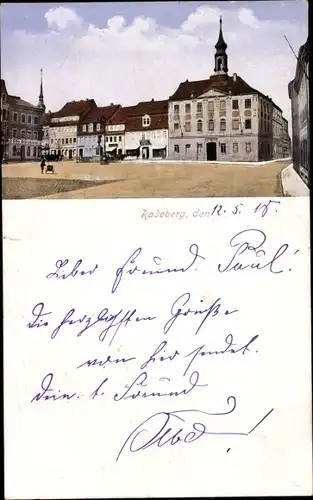 Radeberg, den 12. 5. 18.
Lieber Freund Paul!
die herzlichsten Grüße
von hier sendet
Dein. l. Freund